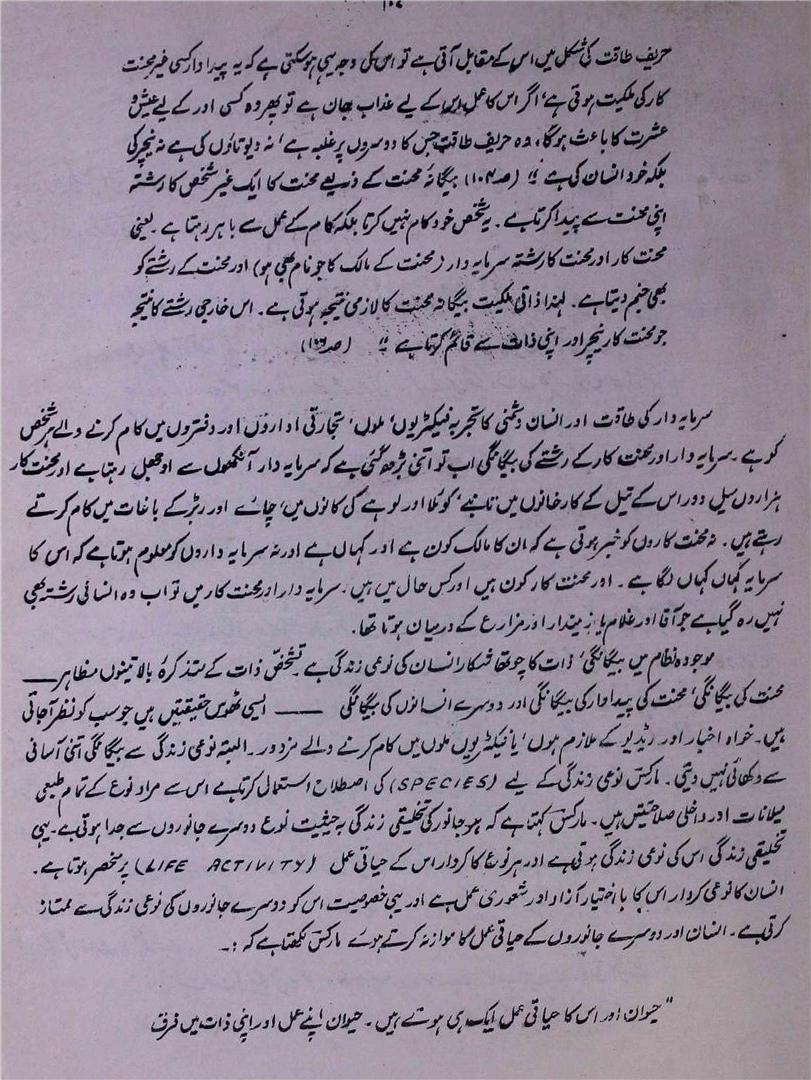 ۱۰۷
حریف طاقت کی شکل میں اس کے مقابل آتی ہے تو اس کی وجہ یہی ہو سکتی ہے کہ یہ پیداوار کسی غیر محنت
کار کی ملکیت ہوتی ہے، اگر اس کا عمل اس کے لیے عذاب جان ہے تو پھر وہ کسی اور کے لیے عیش و
عشرت کا باعث ہوگا، وہ حریف طاقت جس کا دوسروں پر غلبہ ہے، نہ دیوتاؤں کی ہے نہ نیچر کی
بلکہ خود انسان کی ہے۔" (صہ ۱۰۴) بیگانہ محنت کے ذریعے محنت کا ایک غیر شخص کا رشتہ
اپنی محنت سے پیدا کرتا ہے۔ یہ شخص خود کام نہیں کرتا بلکہ کام کے عمل سے باہر رہتا ہے۔ یعنی
محنت کار اور محنت کا رشتہ سرمایہ دار (محنت کے مالک کا جو نام بھی ہو) اور محنت کے رشتے کو
بھی جنم دیتا ہے۔ لہٰذا ذاتی ملکیت بیگانہ محنت کا لازمی نتیجہ ہوتی ہے۔ اس خارجی رشتے کا نتیجہ
جو محنت کار نیچر اور اپنی ذات سے قائم کرتا ہے۔" (صہ ۱۰۶)
سرمایہ دار کی طاقت اور انسان دشمنی کا تجربہ فیکٹریوں، ملوں، تجارتی اداروں اور دفتروں میں کام کرنے والے ہر شخص
کو ہے۔ سرمایہ دار اور محنت کار کے رشتے کی بیگانگی اب تو اتنی بڑھ گئی ہے کہ سرمایہ دار آنکھوں سے اوجھل رہتا ہے اور محنت کار
ہزاروں میل دور اس کے تیل کے کارخانوں میں تانبے، کوئلا اور لوہے کی کانوں میں، چائے اور ربڑ کے باغات میں کام کرتے
رہتے ہیں۔ نہ محنت کاروں کو خبر ہوتی ہے کہ ان کا مالک کون ہے اور کہاں ہے اور نہ سرمایہ داروں کو معلوم ہوتا ہے کہ اس کا
سرمایہ کہاں کہاں لگا ہے۔ اور محنت کار کون ہیں اور کس حال میں ہیں۔ سرمایہ دار اور محنت کار میں تو اب وہ انسانی رشتہ بھی
نہیں رہ گیا ہے جو آقا اور غلام یا زمیندار اور مزارع کے درمیان ہوتا تھا۔
موجودہ نظام میں بیگانگی، ذات کا چوتھا شکار انسان کی نوعی زندگی ہے۔ تشخص ذات کے متذکرہ بالا تینوں مظاہر ——
محنت کی بیگانگی، محنت کی پیداوار کی بیگانگی اور دوسرے انسانوں کی بیگانگی —— ایسی ٹھوس حقیقتیں ہیں جو سب کو نظر آجاتی
ہیں۔ خواہ اخبار اور ریڈیو کے ملازم ہوں، یا فیکٹریوں ملوں میں کام کرنے والے مزدور۔ البتہ نوعی زندگی سے بیگانگی اتنی آسانی
سے دکھائی نہیں دیتی۔ مارکس نوعی زندگی کے لیے (SPECIES) کی اصطلاح استعمال کرتا ہے اس سے مراد نوع کے تمام طبیعی
میلانات اور داخلی صلاحیتیں ہیں۔ مارکس کہتا ہے کہ ہر جانور کی تخلیقی زندگی بہ حیثیت نوع دوسرے جانوروں سے جدا ہوتی ہے۔ یہی
تخلیقی زندگی اس کی نوعی زندگی ہوتی ہے اور ہر نوع کا کردار اس کے حیاتی عمل (LIFE ACTIVITY) پر منحصر ہوتا ہے۔
انسان کا نوعی کردار اس کا بااختیار آزاد اور شعوری عمل ہے اور یہی خصوصیت اس کو دوسرے جانوروں کی نوعی زندگی سے ممتاز
کرتی ہے۔ انسان اور دوسرے جانوروں کے حیاتی عمل کا موازنہ کرتے ہوئے مارکس لکھتا ہے کہ :۔
"حیوان اور اس کا حیاتی عمل ایک ہی ہوتے ہیں۔ حیوان اپنے عمل اور اپنی ذات میں فرق